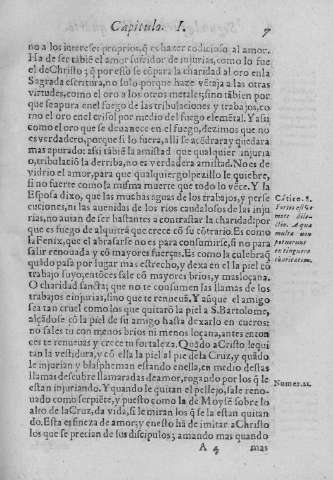 Capitulo. I. 7
no a los intereses proprios, q̃ es hazer codicioso al amor.
Ha de ser tãbiẽ el amor sufridor de injurias, como lo fue
el de Christo; q̃ por esto se cõpara la charidad al oro en la
Sagrada escritura, no solo porque haze vẽtaja a las otras
virtudes, como el oro a los otros metales; sino tãbien por
que se apura en el fuego de las tribulaciones y trabajos, co
mo el oro en el crisol por medio del fuego elemẽtal. Y assi
como el oro que se desuanece en el fuego, dezimos que no
es verdadero, porque si lo fuera, alli se acẽdrara y quedara
mas apurado: assi tãbiẽ la amistad que qualquier injuria
o, tribulaciõ la derriba, no es verdadera amistad. No es de
vidrio el amor, para que qualquier golpezillo le quiebre,
si no fuerte como la misma muerte que todo lo vẽce. Y la
Esposa dixo, que las muchas aguas de los trabajos, y perse
cuciones, ni las auenidas de los rios caudalosos de las inju
rias, no auian de ser bastantes a contrastar la charidad; por
que es fuego de alquitrã que crece cõ su cõtrario. Es como
la Fenix, que el abrasarse no es para consumirse, si no para
salir renouada y cõ mayores fuerças. Es como la culebra q̃
quãdo passa por lugar mas estrecho, y dexa en el la piel cõ
trabajo suyo, entonces sale cõ mayores brios, y mas loçana.
O charidad sancta; que no te consumen las llamas de los
trabajos e injurias, sino que te renueuã, Y aũque el amigo
sea tan cruel como los que quitarõ la piel a S. Bartolome,
alçãdose cõ la de su amigo hasta dexarlo en cueros:
no sales tu con menos brios ni menos loçana, antes enton
ces te renueuas y crece tu fortaleza. Quãdo a Cristo le qui
tan la vestidura, y cõ ella la piel al pie de la Cruz, y quãdo
le injurian y blasphemam estando en ella, en medio destas
llamas descubre llamaradas de amor, rogando por los q̃ le
estan injuriando. Y quando le quitan el pellejo, sale reno-
uado como serpiẽte, y puesto como la de Moysẽ sobre lo
alto de la Cruz, da vida, si le miran los q̃ se la estan quitan
do. Esta es fineza de amor; y en esto hã de imitar a Christo
los que se precian de sus discipulos; amando mas quando
A 4 mas
Cãtico. 8.
Fortis est vt
mors dile-
ctio. Aquæ
multæ non
potuerunt
extinguere
charitatem.
Numer. 21.